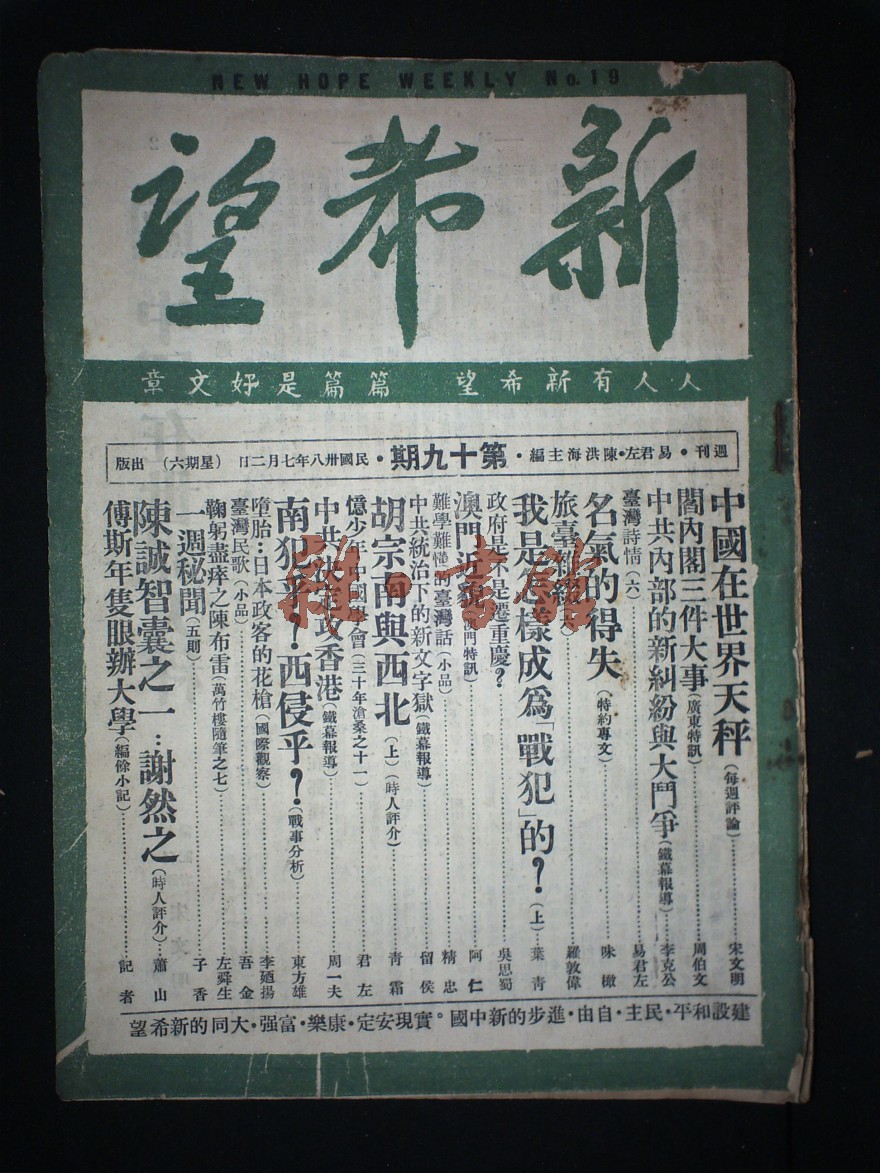 NEW HOPE WEEKLY No.19
新希望
人人有新希望 篇篇是好文章
週刊・易君左・陳洪海主編・第十九期・民國卅八年七月二日(星期六)出版
中國在世界天秤(每週評論)宋文明
閻內閣三件大事(廣東特訊)周伯文
中共內部的新糾紛與大鬥爭(鐵幕報導)李克公
臺灣詩情(六)易君左
名氣的得失(特約專文)味橄
旅臺 羅敦偉
我是怎樣成爲「戰犯」的?(上)葉青
政府是不是遷重慶?吳思蜀
澳門近貌(澳門特訊)阿仁
難學難懂的臺灣話(小品)精忠
中共統治下的新文字獄(鐵幕報導)留侯
胡宗南與西北(上)(時人評介)青霜
憶少年中國學會(三十年滄桑之十一)君左
中共決進攻香港(鐵幕報導)周一夫
南犯乎?西侵乎?(戰事分析)東方雄
墮胎:日本政客的花槍(國際觀察)李廼揚
臺灣民歌(小品)吾金
鞠躬盡瘁之陳布雷(萬竹樓隨筆之七)左舜生
一週秘聞(五則)子香
陳誠智囊之一:謝然之(時人評介)蕭山
傅斯年隻眼辦大學(編餘小記)記者
建設和平・民主・自由・進步的新中國。實現安定・康樂・富强・大同的新希望
雜·書館